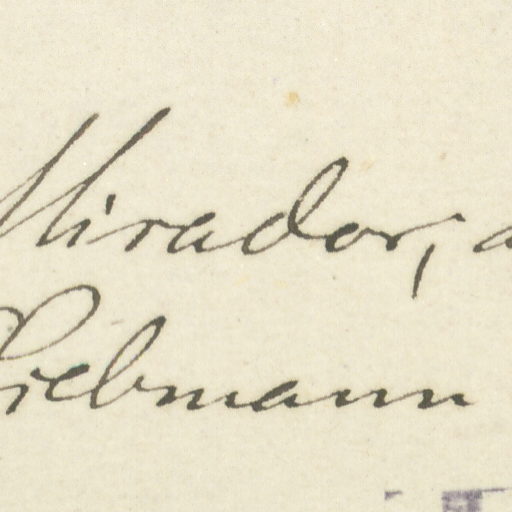 Mirador, a
Liebmann